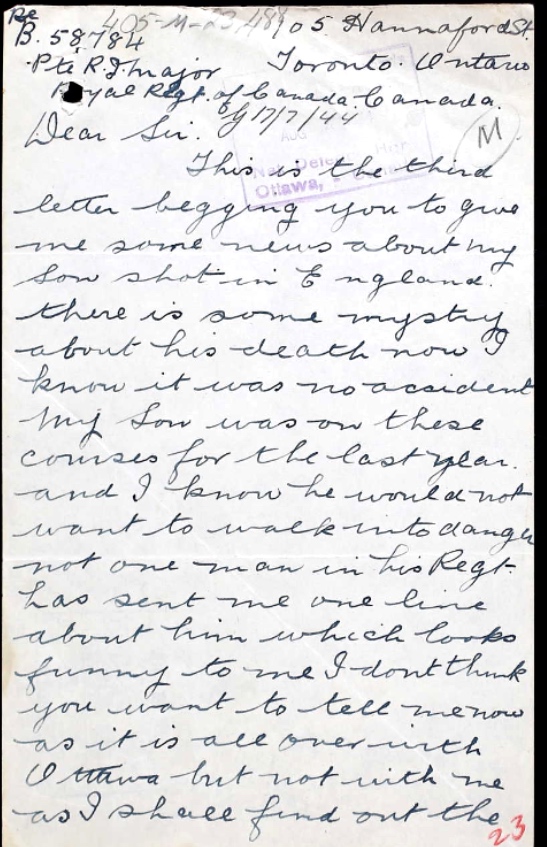 Re 405-M-23,489 105 Hannaford St.
B. 58784
Pte R. J. Major Toronto. Ontario
Royal Regt. of Canada. Canada.
17/7/44
Dear Sir.
M
This is the third
Ottawa,
letter begging you to give
me some news about my
Son shot in England.
there is some mystry
about his death now I
know it was no accident
my Son was on these
courses for the last year.
and I know he would not
want to walk into danger
not one man in his Regt.
has sent me one line
about him which looks
funny to me I dont think
you want to tell me now
as it is all over with
Ottawa but not with me
as I shall find out the
23